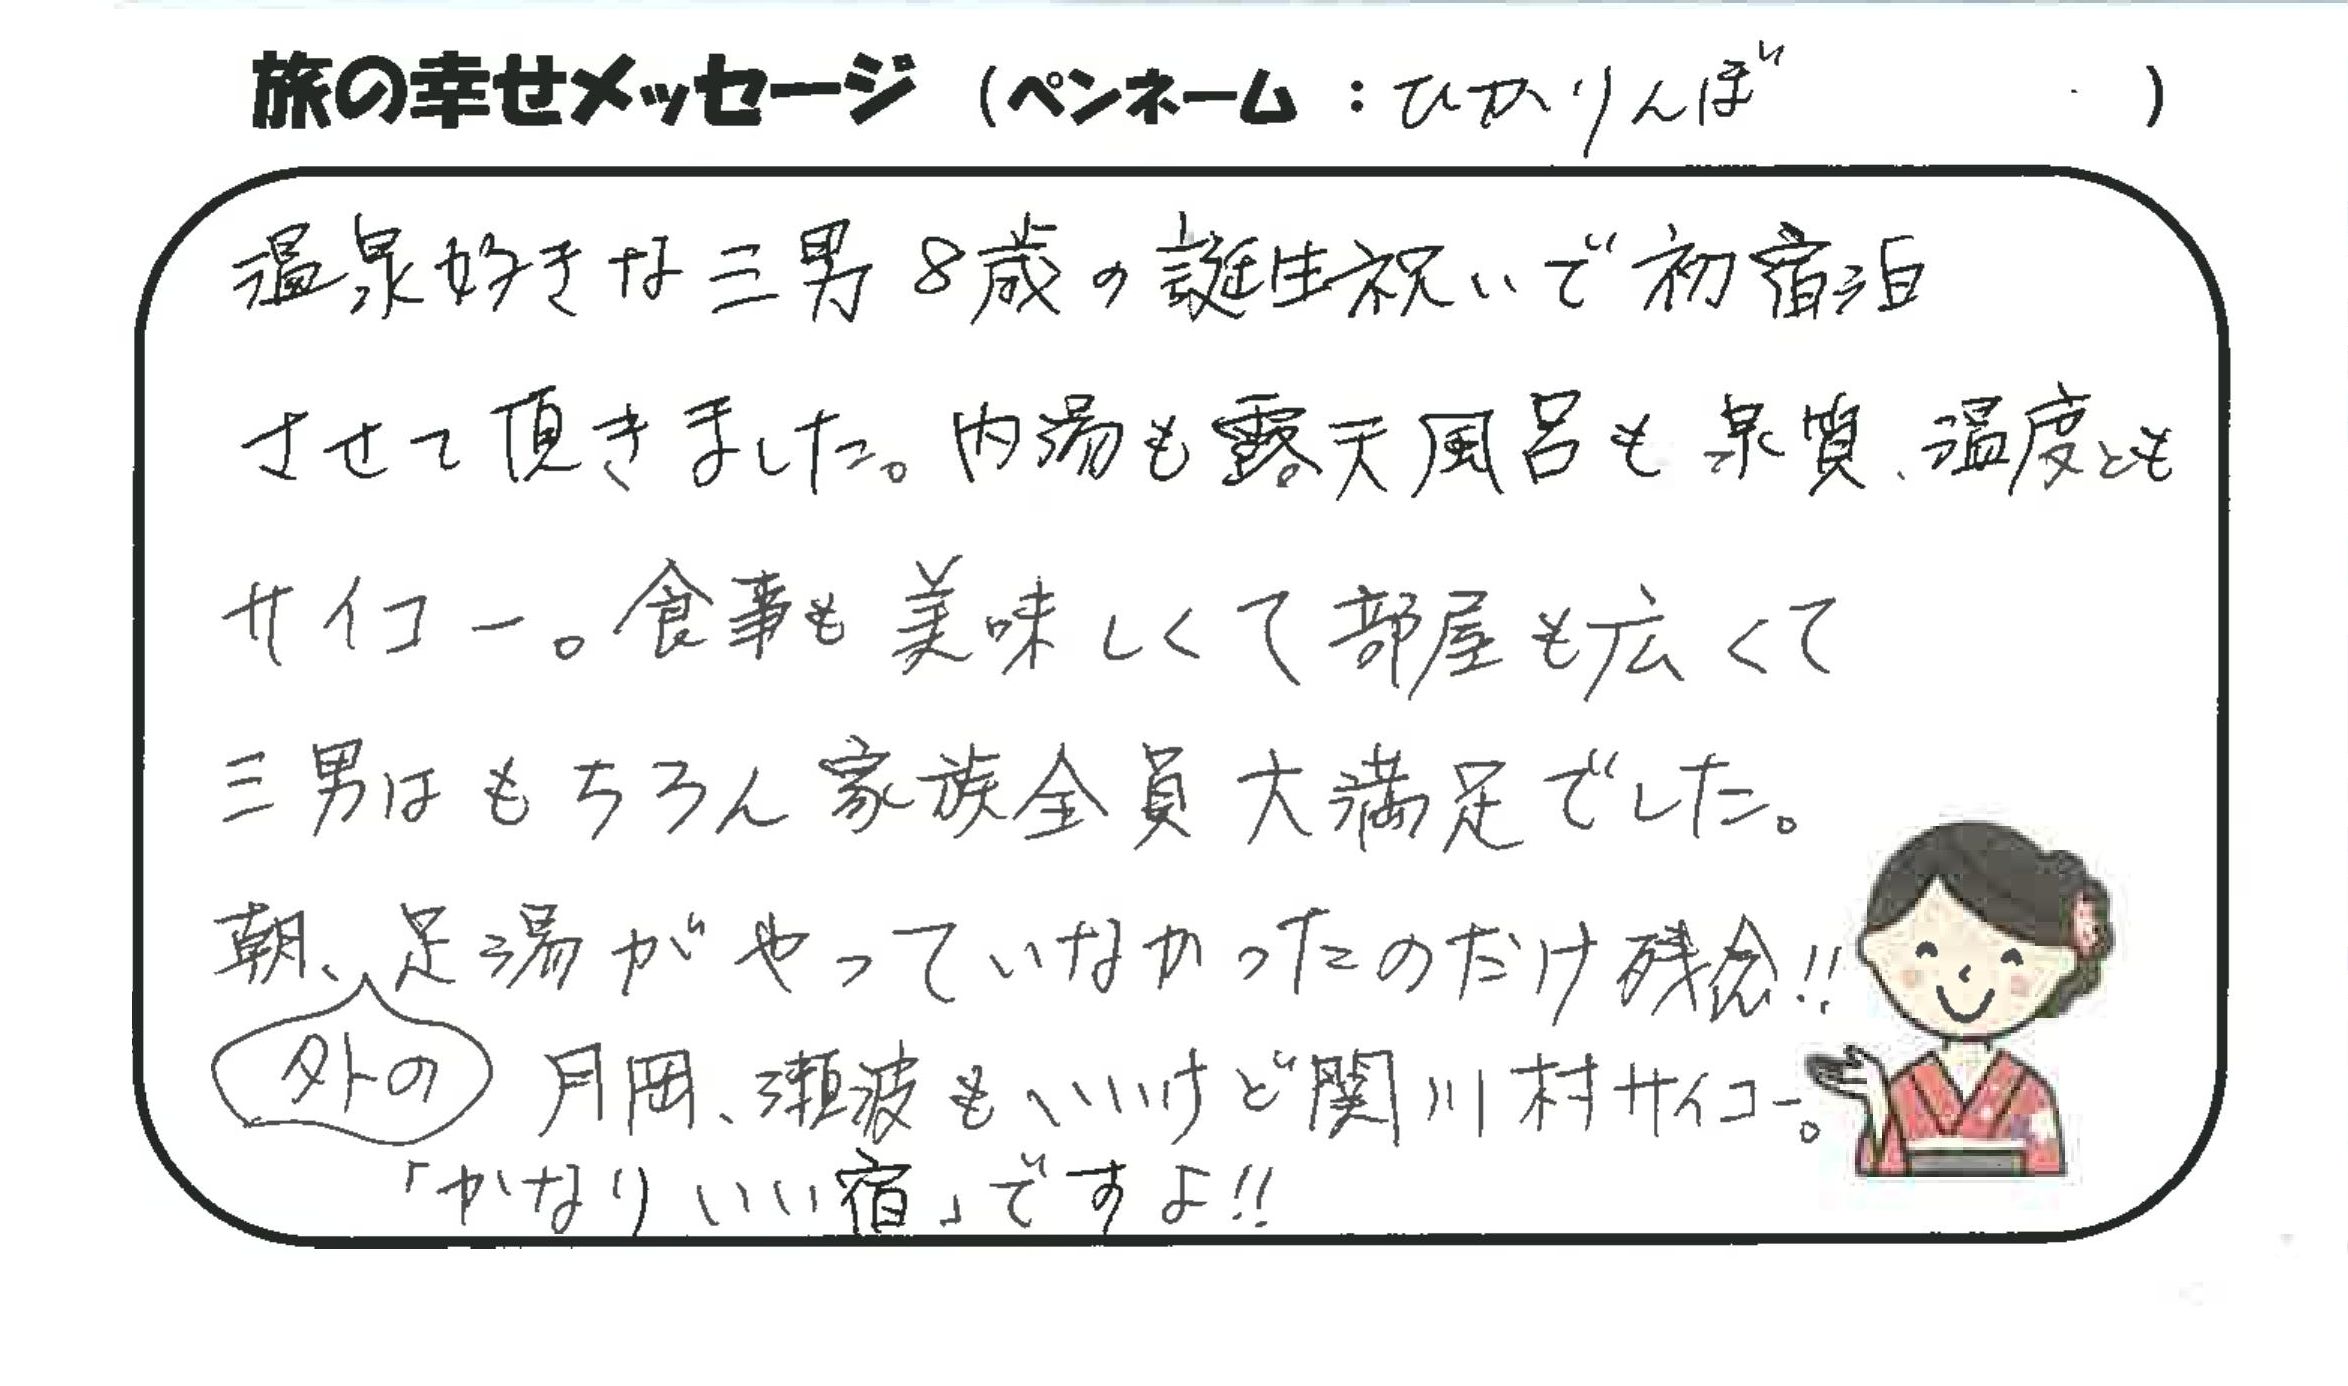 旅の幸せメッセージ (ペンネーム : ひかりんぼ )
温泉好きな三男8歳の誕生祝いで初宿泊
させて頂きました。内湯も露天風呂も泉質、温度とも
サイコー。食事も美味しくて部屋も広くて
三男はもちろん家族全員大満足でした。
朝、足湯がやっていなかったのだけ残念!!
外の
月岡、瀬波もいいけど関川村サイコー。
「かなりいい宿」ですよ!!